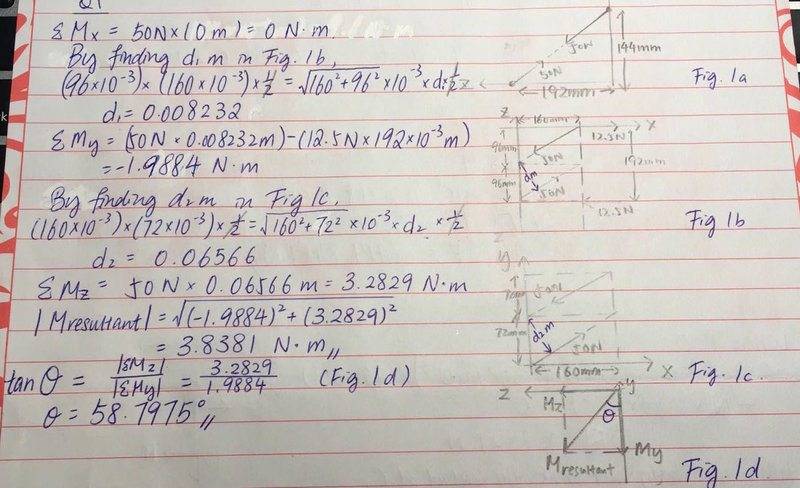 Q1
ΣMx = 50N×(0m) = 0 N·m.
By finding d₁m in Fig. 1b,
(96×10⁻³)×(160×10⁻³)×½ = √160²+96² ×10⁻³ ×d×½
d₁ = 0.008232
ΣMy = (50N × 0.008232m)-(12.5N×192×10⁻³m)
= -1.9884 N·m
By finding d₂m in Fig 1c,
(160×10⁻³)×(72×10⁻³)×½ = √160²+72² ×10⁻³ × d₂ ×½
d₂ = 0.06566
ΣMz = 50N × 0.06566 m = 3.2829 N·m
|Mresultant| = √(-1.9884)²+(3.2829)²
= 3.8381 N·m,,
tanθ = |ΣMz| / |ΣMy| = 3.2829 / 1.9884 (Fig. 1d)
θ = 58.7975°,,
50N
50N
144mm
z
192mm
Fig. 1a
z
160mm
x
12.5N
96mm
50N
192mm
x
96mm
d₁m
50N
12.5N
Fig 1b
z
y
50N
72mm
d₂m
50N
160mm
x
Fig. 1c.
z
y
Mz
θ
My
Mresultant
Fig. 1d